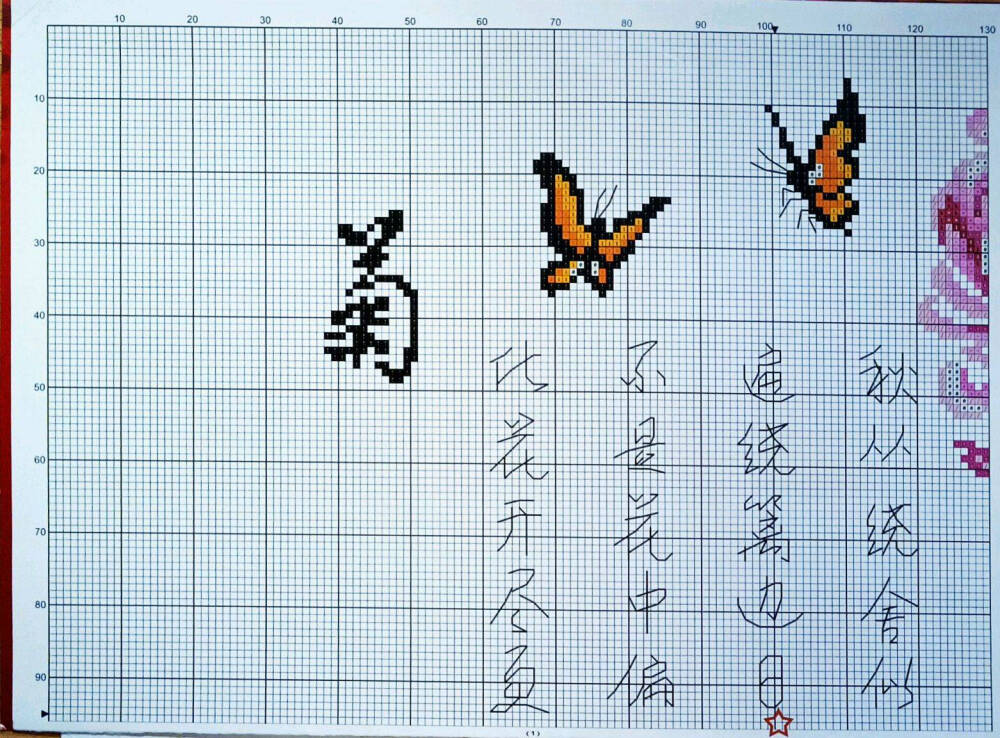 10 20 30 40 50 60 70 80 90 100 110 120 130
10
20
30
40
50
60
70
80
90
菊
秋从绕舍似
遍绕篱边日
不是花中偏
此花开尽更
(1)